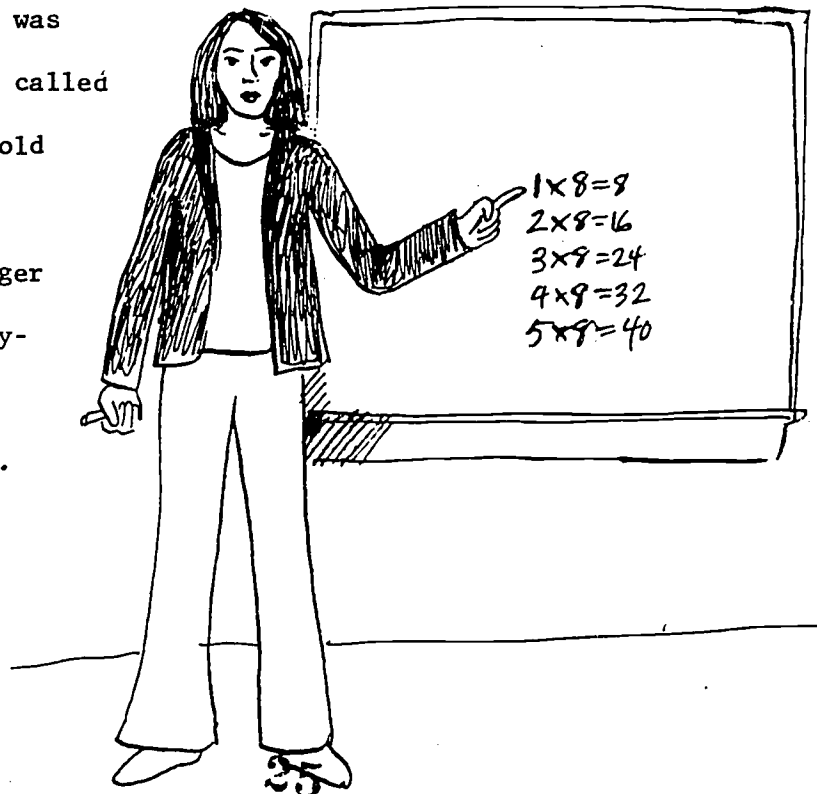 was
called
old
ger
y-
.
1×8=8
2×8=16
3×8=24
4×8=32
5×8=40
25